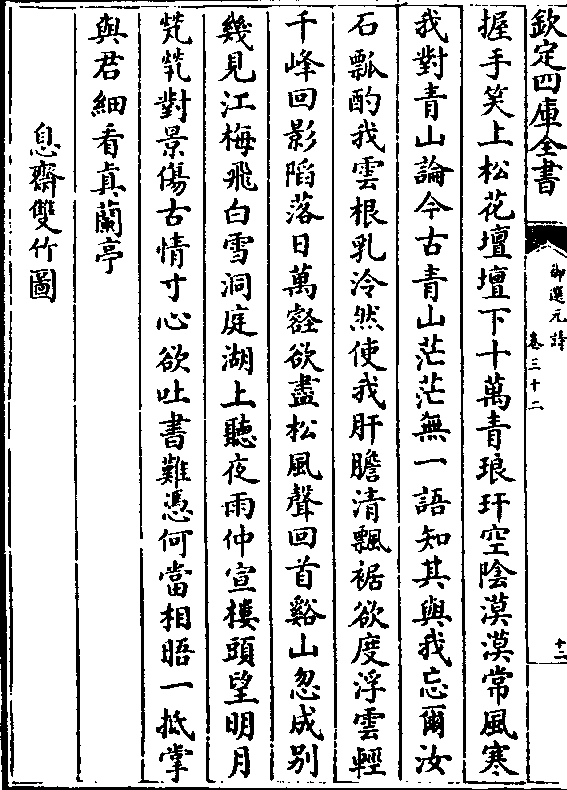 欽定四庫全書
御選元詩
卷三十二
十二
握手笑上松花壇壇下十萬青琅玕空陰漠漠常風寒
我對青山論今古青山茫茫無一語知其與我忘爾汝
石瓢酌我雲根乳泠然使我肝膽清飄裾欲度浮雲輕
千峰回影陷落日萬壑欲盡松風聲回首谿山忽成別
幾見江梅飛白雪洞庭湖上聽夜雨仲宣樓頭望明月
煢煢對景傷古情寸心欲吐書難憑何當相晤一抵掌
與君細看真蘭亭
息齋雙竹圖